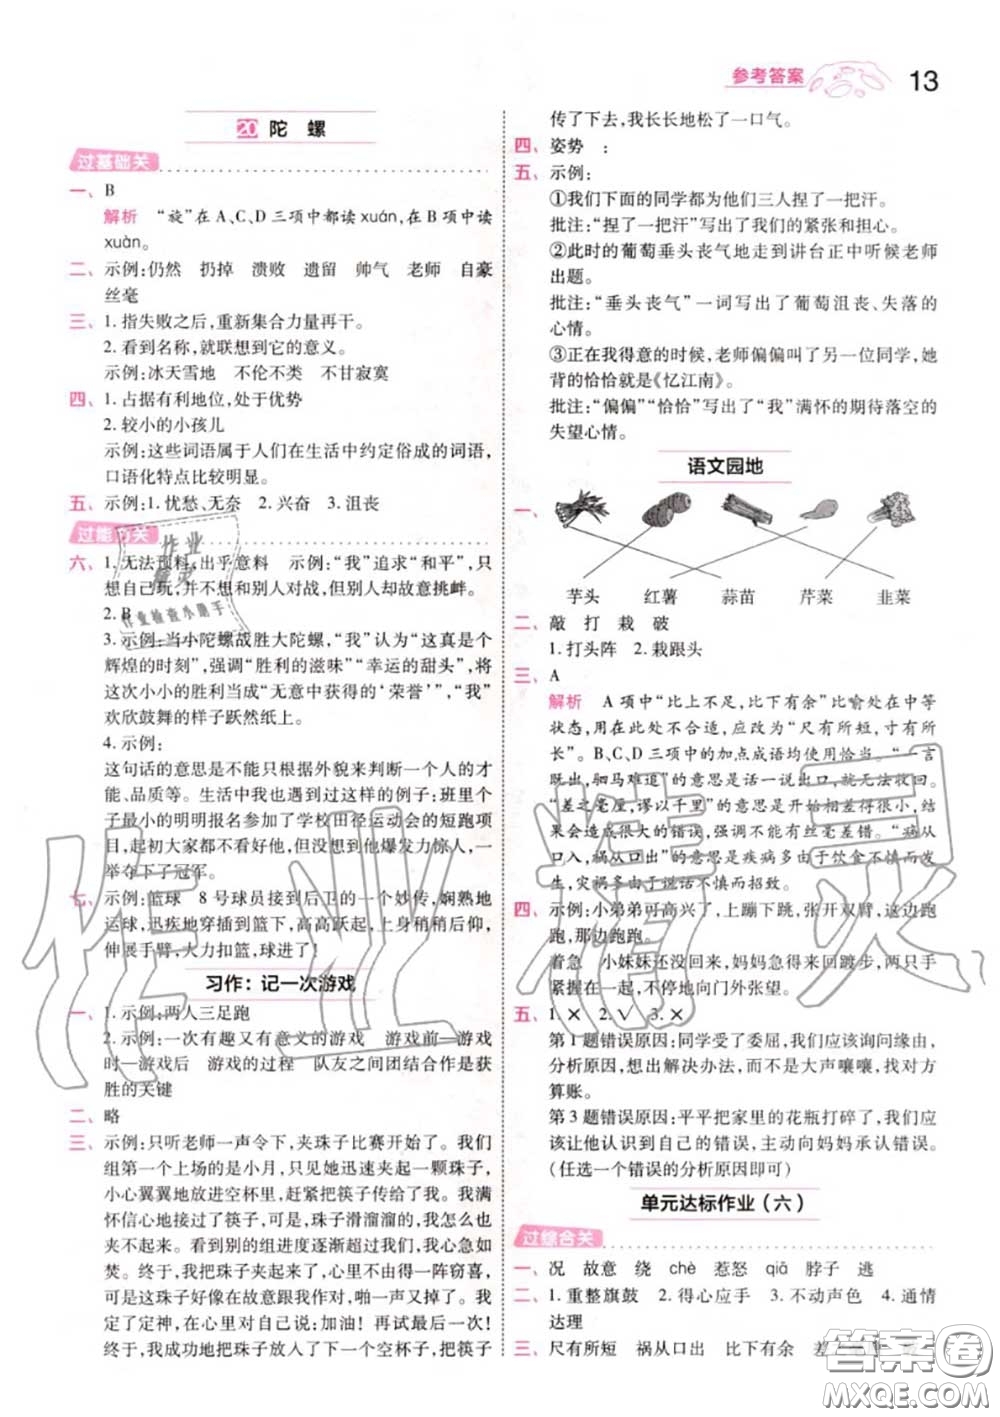 参考答案 13
20 陀 螺
过基础关
一、 B
解析 “旋”在 A、C、D 三项中都读 xuán，在 B 项中读
xuàn。
二、 示例：仍然 扔掉 溃败 遗留 帅气 老师 自豪
丝毫
三、 1. 指失败之后，重新集合力量再干。
2. 看到名称，就联想到它的意义。
示例：冰天雪地 不伦不类 不甘寂寞
四、 1. 占据有利地位，处于优势
2. 较小的小孩儿
示例：这些词语属于人们在生活中约定俗成的词语，
口语化特点比较明显。
五、 示例：1. 忧愁、无奈 2. 兴奋 3. 沮丧
过能力关
六、 1. 无法预料，出乎意料 示例：“我”追求“和平”，只
想自己玩，并不想和别人对战，但别人却故意挑衅。
2. B
3. 示例：当小陀螺战胜大陀螺，“我”认为“这真是个
辉煌的时刻”，强调“胜利的滋味”“幸运的甜头”，将
这次小小的胜利当成“无意中获得的‘荣誉’”，“我”
欢欣鼓舞的样子跃然纸上。
4. 示例：
这句话的意思是不能只根据外貌来判断一个人的才
能、品质等。生活中我也遇到过这样的例子：班里个
子最小的明明报名参加了学校田径运动会的短跑项
目，起初大家都不看好他，但没想到他爆发力惊人，一
举夺下了冠军。
七、 示例：篮球 8 号球员接到后卫的一个妙传，娴熟地
运球，迅疾地穿插到篮下，高高跃起，上身稍稍后仰，
伸展手臂，大力扣篮，球进了！
习作：记一次游戏
一、 1. 示例：两人三足跑
2. 示例：一次有趣又有意义的游戏 游戏前—游戏
时—游戏后 游戏的过程 队友之间团结合作是获
胜的关键
二、 略
三、 示例：只听老师一声令下，夹珠子比赛开始了。我们
组第一个上场的是小月，只见她迅速夹起一颗珠子，
小心翼翼地放进空杯里，再把筷子传给了我。我满
怀信心地接过了筷子，可是，珠子滑溜溜的，我怎么也
夹不起来。看到别的组进度比我们快，我不禁心急如
焚。终于，我把珠子夹起来了，可心里一阵窃喜，
可这珠子好像在故意跟我作对，啪一声又掉了。我定
了定神，在心里对自己说：加油！再试最后一次！
终于，我成功地把珠子放入了下一个空杯子，把筷子
传了下去，我长长地松了一口气。
四、 姿势 ：
五、 示例：
①我们下面的同学都为他们三人捏了一把汗。
批注：“捏了一把汗”写出了我们的紧张和担心。
②此时的葡萄垂头丧气地走到讲台正中听候老师
出题。
批注：“垂头丧气”一词写出了葡萄沮丧、失落的
心情。
③正在我得意的时候，老师偏偏叫了另一位同学，她
背的恰恰就是《忆江南》。
批注：“偏偏”“恰恰”写出了“我”满怀的期待落空的
失望心情。
语文园地
一、
芋头 红薯 蒜苗 芹菜 韭菜
二、 敲 打 栽 破
1. 打头阵 2. 栽跟头
三、 A
解析 A 项中“比上不足，比下有余”比喻处在中等
状态，用在此处不合适，应改为“尺有所短，寸有所
长”。B、C、D 三项中的加点成语均使用恰当。“一言
既出，驷马难追”的意思是话一说出口，就无法收回。
“差之毫厘，谬以千里”的意思是开始相差得很小，结
果会造成很大的错误，强调不能有丝毫差错。“病从
口入，祸从口出”的意思是疾病多由于饮食不慎而发
生，灾祸多由于说话不慎而招致。
四、 示例：小弟弟可高兴了，上蹦下跳，张开双臂，这边跑
跑，那边跑跑。
着急 小妹妹还没回来，妈妈急得来回踱步，两只手
紧握在一起，不停地向门外张望。
五、 1. × 2. √ 3. ×
第 1 题错误原因：同学受了委屈，我们应该询问缘由，
分析原因，想出解决办法，而不是大声嚷嚷，找对方
算账。
第 3 题错误原因：平平把家里的花瓶打碎了，我们应
该让他认识到自己的错误，主动向妈妈承认错误。
（任选一个错误的分析原因即可）
单元达标作业（六）
过综合关
一、 况 故意 绕 chè 惹怒 qiā 脖子 逃
二、 1. 重整旗鼓 2. 得心应手 3. 不动声色 4. 通情
达理
三、 尺有所短 祸从口出 比下有余
作业精灵
作业检查小助手
答案圈
MXQE.COM